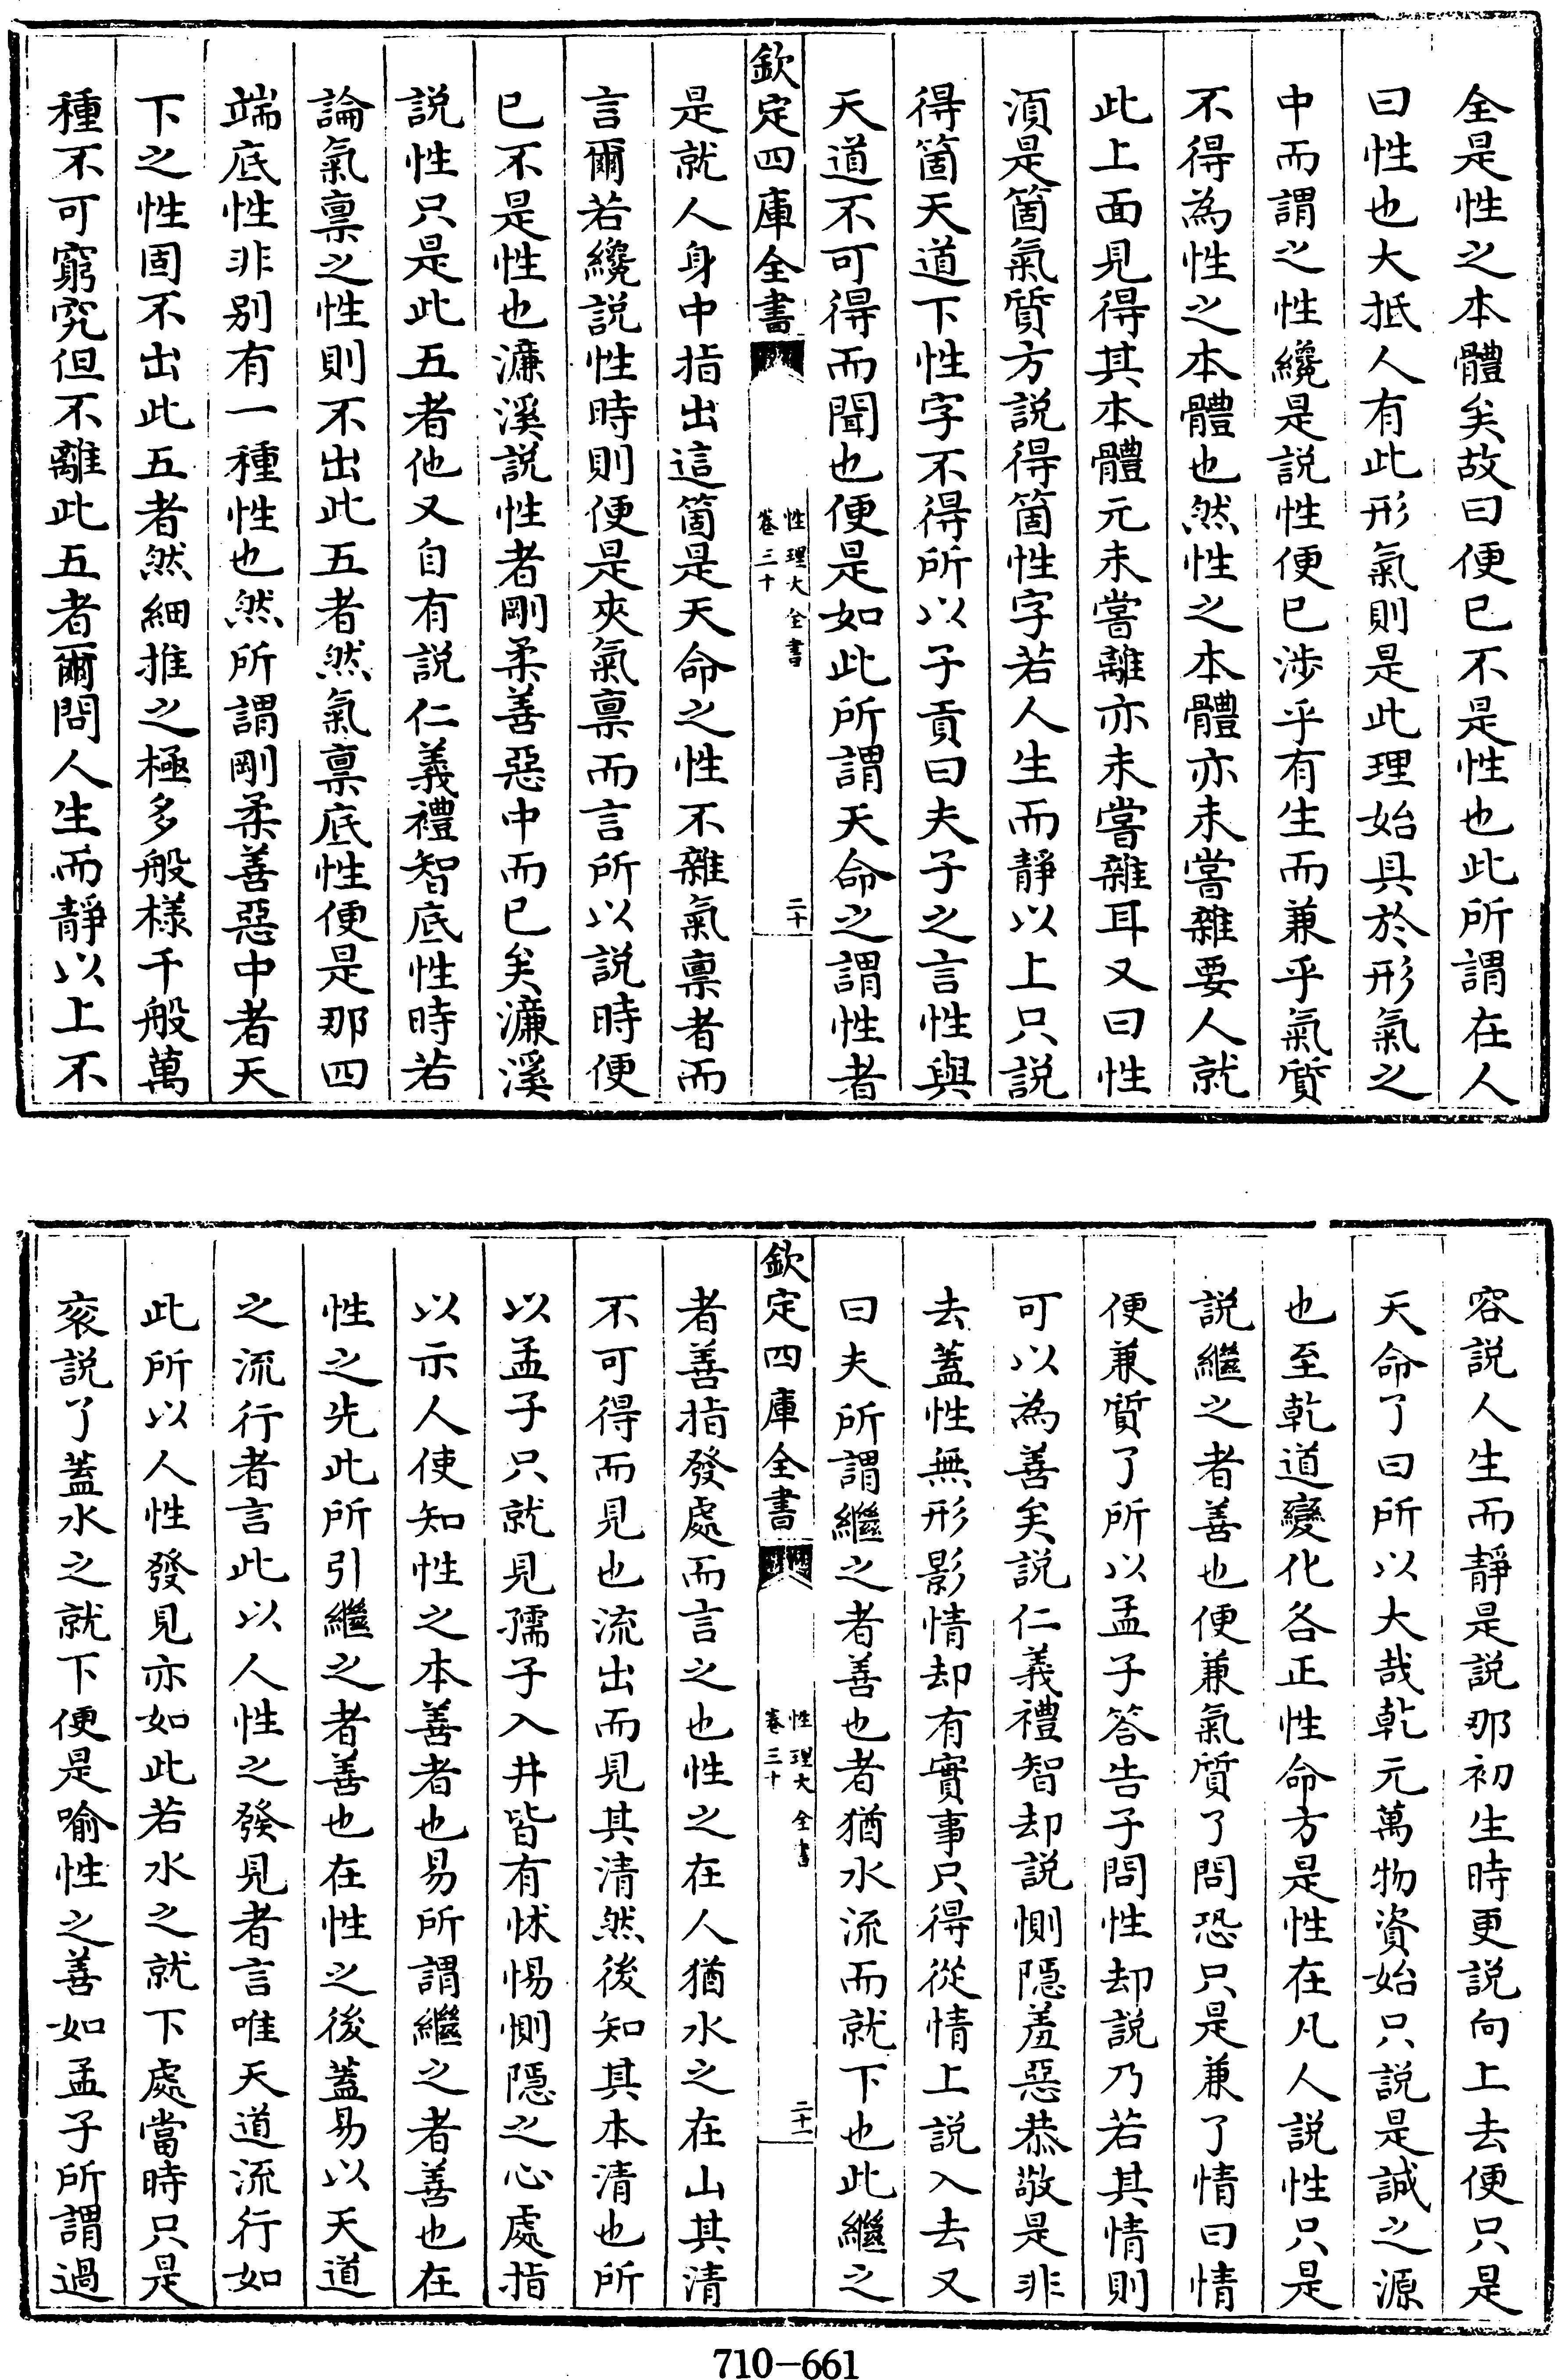 全是性之本體矣故曰便已不是性也此所謂在人
曰性也大抵人有此形氣則是此理始具於形氣之
中而謂之性纔是說性便已涉乎有生而兼乎氣質
不得為性之本體也然性之本體亦未嘗雜要人就
此上面見得其本體元未嘗離亦未嘗雜耳又曰性
湏是箇氣質方說得箇性字若人生而靜以上只說
得箇天道下性字不得所以子貢曰夫子之言性與
天道不可得而聞也便是如此所謂天命之謂性者
欽定四庫全書
性理大全書
卷三十
二十
是就人身中指出這箇是天命之性不雜氣禀者而
言爾若纔說性時則便是夾氣禀而言所以說時便
已不是性也濂溪說性者剛柔善惡中而已矣濂溪
說性只是此五者他又自有說仁義禮智底性時若
論氣禀之性則不出此五者然氣禀底性便是那四
端底性非别有一種性也然所謂剛柔善惡中者天
下之性固不出此五者然細推之極多般樣千般萬
種不可窮究但不離此五者爾問人生而靜以上不
容說人生而靜是說那初生時更說向上去便只是
天命了曰所以大哉乾元萬物資始只說是誠之源
也至乾道變化各正性命方是性在凡人說性只是
說繼之者善也便兼氣質了問恐只是兼了情曰情
便兼質了所以孟子答告子問性却說乃若其情則
可以為善矣說仁義禮智却說惻隱羞惡恭敬是非
去蓋性無形影情却有實事只得從情上說入去又
曰夫所謂繼之者善也者猶水流而就下也此繼之
欽定四庫全書
性理大全書
卷三十
二十一
者善指發處而言之也性之在人猶水之在山其清
不可得而見也流出而見其清然後知其本清也所
以孟子只就見孺子入井皆有怵惕惻隱之心處指
以示人使知性之本善者也易所謂繼之者善也在
性之先此所引繼之者善也在性之後蓋易以天道
之流行者言此以人性之發見者言唯天道流行如
此所以人性發見亦如此若水之就下處當時只是
衮說了蓋水之就下便是喻性之善如孟子所謂過
710-661